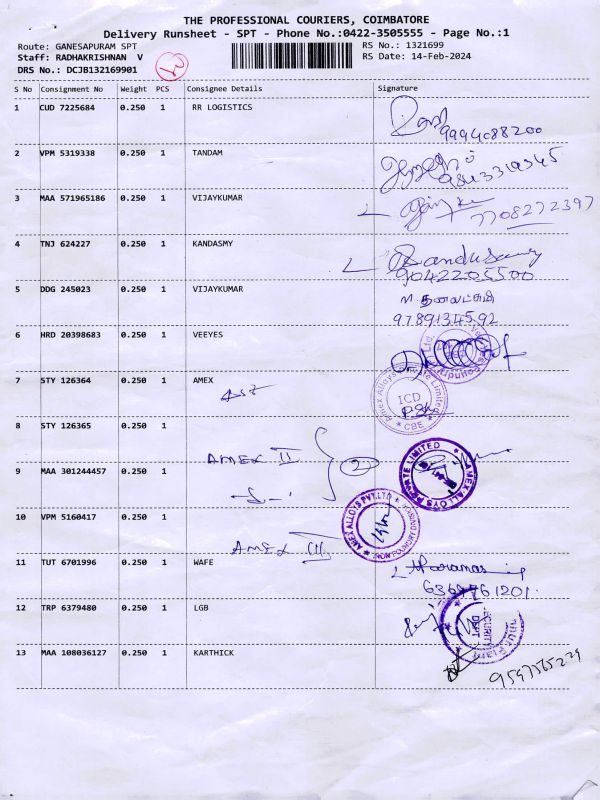 THE PROFESSIONAL COURIERS, COIMBATORE
Delivery Runsheet - SPT - Phone No.:0422-3505555 - Page No.:1
Route: GANESAPURAM SPT RS No.: 1321699
Staff: RADHAKRISHNAN V RS Date: 14-Feb-2024
DRS No.: DCJB132169901
S No Consignment No Weight PCS Consignee Details Signature
1 CUD 7225684 0.250 1 RR LOGISTICS
9994088200
2 VPM 5319338 0.250 1 TANDAM
9843319345
3 MAA 571965186 0.250 1 VIJAYKUMAR
7708272397
4 TNJ 624227 0.250 1 KANDASMY
9042205500
5 DDG 245023 0.250 1 VIJAYKUMAR
9789134592
6 HRD 20398683 0.250 1 VEEYES
7 STY 126364 0.250 1 AMEX
Amex Alloys Private Limited
ICD
CBE
8 STY 126365 0.250 1
AMEX II 2
AMEX ALLOYS PRIVATE LIMITED
9 MAA 301244457 0.250 1
10 VPM 5160417 0.250 1
AMEX ALLOYS PVT.LTD
AMEX III
11 TUT 6701996 0.250 1 WAFE
12 TRP 6379480 0.250 1 LGB
SECURITY DEPT
13 MAA 108036127 0.250 1 KARTHICK